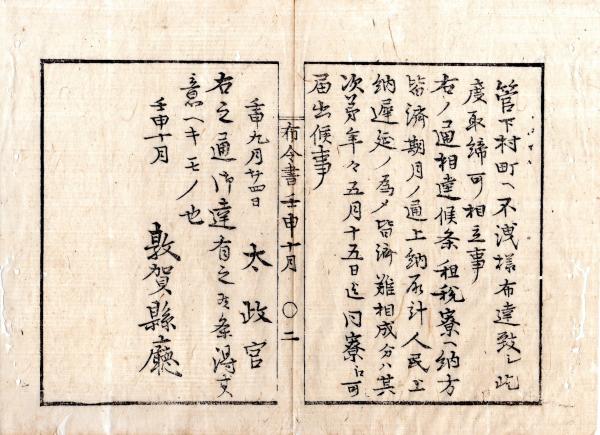 管下村町ヘ不洩様布達致シ此
度取締可相立事
右ノ通相達候条租税寮ヘ納方
皆済期月ノ通上納取計人民上
納遅延ノ為メ皆済難相成分ハ其
次第年々五月十五日迄同寮ヘ可
届出候事
布令書壬申十月 〇二
壬申九月廿四日 太政官
右之通御達有之候条得其
意ヘキモノ也
壬申十月 敦賀縣廳